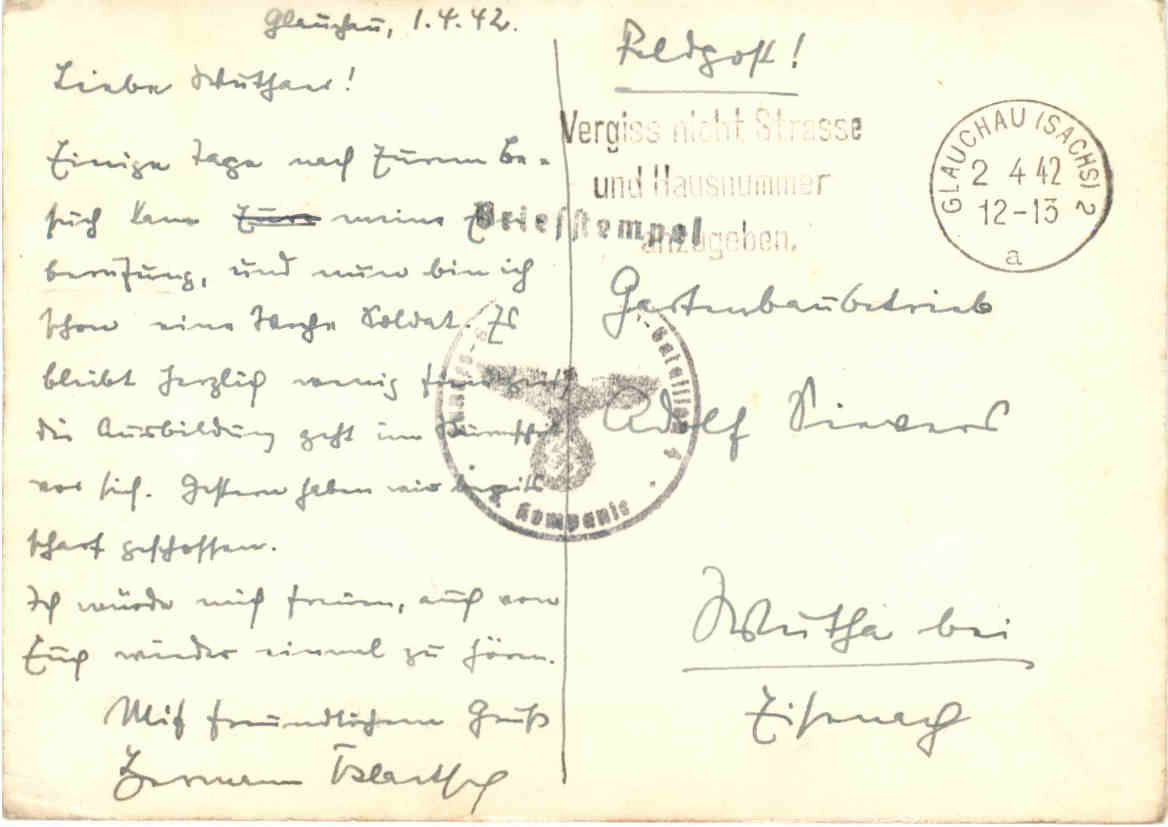 Glauchau, 1.4.42.
Liebe Wuthaer!
Einige Tage nach Eurem Be-
such kam Eure meine Ein-
berufung, und nun bin ich
schon eine Woche Soldat. Es
bleibt herzlich wenig Freizeit
die Ausbildung geht im
vor sich. Gestern haben wir bereits
scharf geschossen.
Ich würde mich freuen, auch von
Euch wieder einmal zu hören.
Mit freundlichem Gruß
Hermann
Feldpost!
Vergiss nicht Strasse
und Hausnummer
anzugeben.
Briefstempel
GLAUCHAU (SACHS) 2
2 4 42
12-13
a
Gartenbaubetrieb
Adolf Sievers
Wutha bei
Eisenach
-Bataillon 4
Kompanie